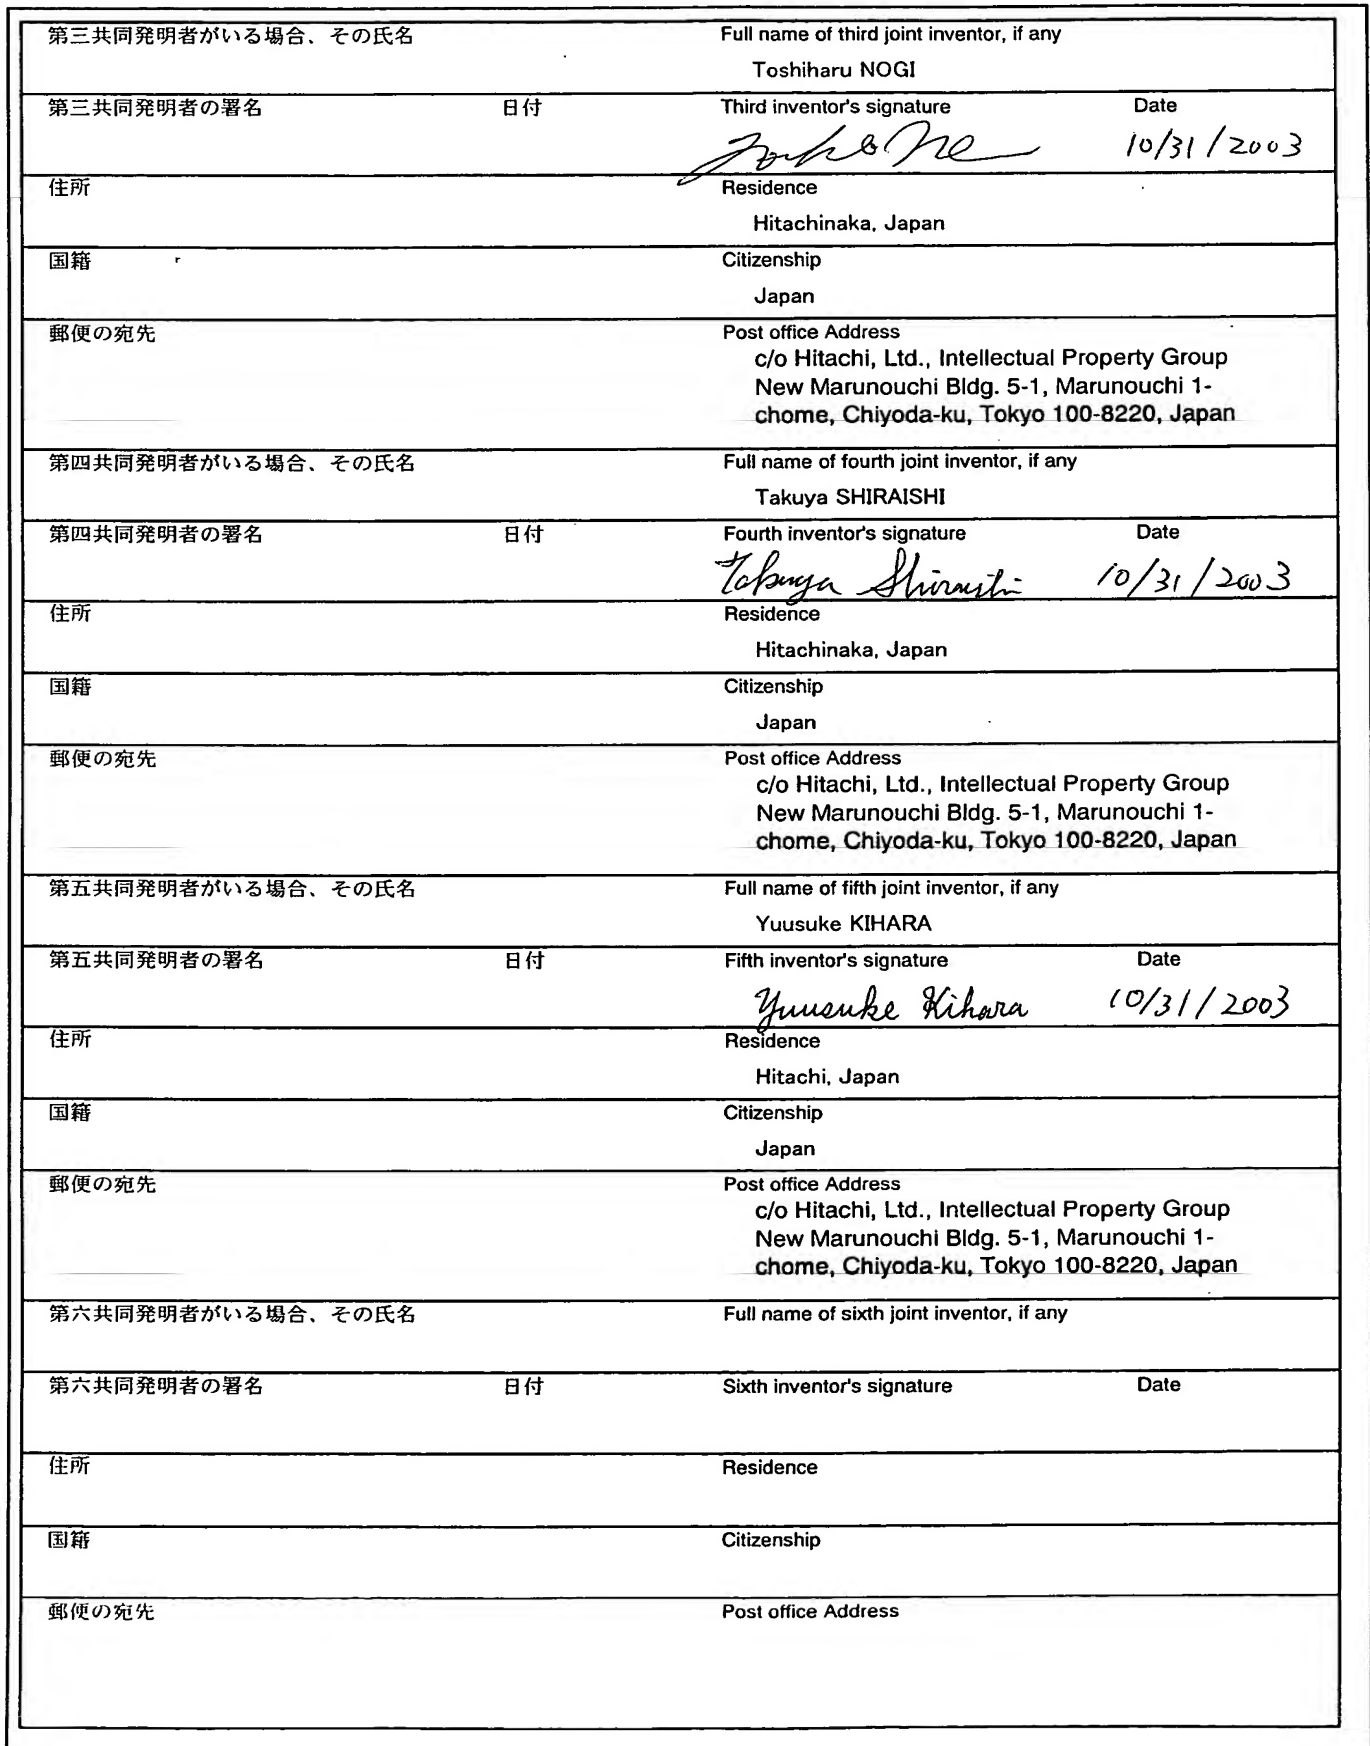 第三共同発明者がいる場合、その氏名 Full name of third joint inventor, if any
Toshiharu NOGI
第三共同発明者の署名 日付 Third inventor's signature Date
10/31/2003
住所 Residence
Hitachinaka, Japan
国籍 Citizenship
Japan
郵便の宛先 Post office Address
c/o Hitachi, Ltd., Intellectual Property Group
New Marunouchi Bldg. 5-1, Marunouchi 1-
chome, Chiyoda-ku, Tokyo 100-8220, Japan
第四共同発明者がいる場合、その氏名 Full name of fourth joint inventor, if any
Takuya SHIRAISHI
第四共同発明者の署名 日付 Fourth inventor's signature Date
Takuya Shiraishi 10/31/2003
住所 Residence
Hitachinaka, Japan
国籍 Citizenship
Japan
郵便の宛先 Post office Address
c/o Hitachi, Ltd., Intellectual Property Group
New Marunouchi Bldg. 5-1, Marunouchi 1-
chome, Chiyoda-ku, Tokyo 100-8220, Japan
第五共同発明者がいる場合、その氏名 Full name of fifth joint inventor, if any
Yuusuke KIHARA
第五共同発明者の署名 日付 Fifth inventor's signature Date
Yuusuke Kihara 10/31/2003
住所 Residence
Hitachi, Japan
国籍 Citizenship
Japan
郵便の宛先 Post office Address
c/o Hitachi, Ltd., Intellectual Property Group
New Marunouchi Bldg. 5-1, Marunouchi 1-
chome, Chiyoda-ku, Tokyo 100-8220, Japan
第六共同発明者がいる場合、その氏名 Full name of sixth joint inventor, if any
第六共同発明者の署名 日付 Sixth inventor's signature Date
住所 Residence
国籍 Citizenship
郵便の宛先 Post office Address